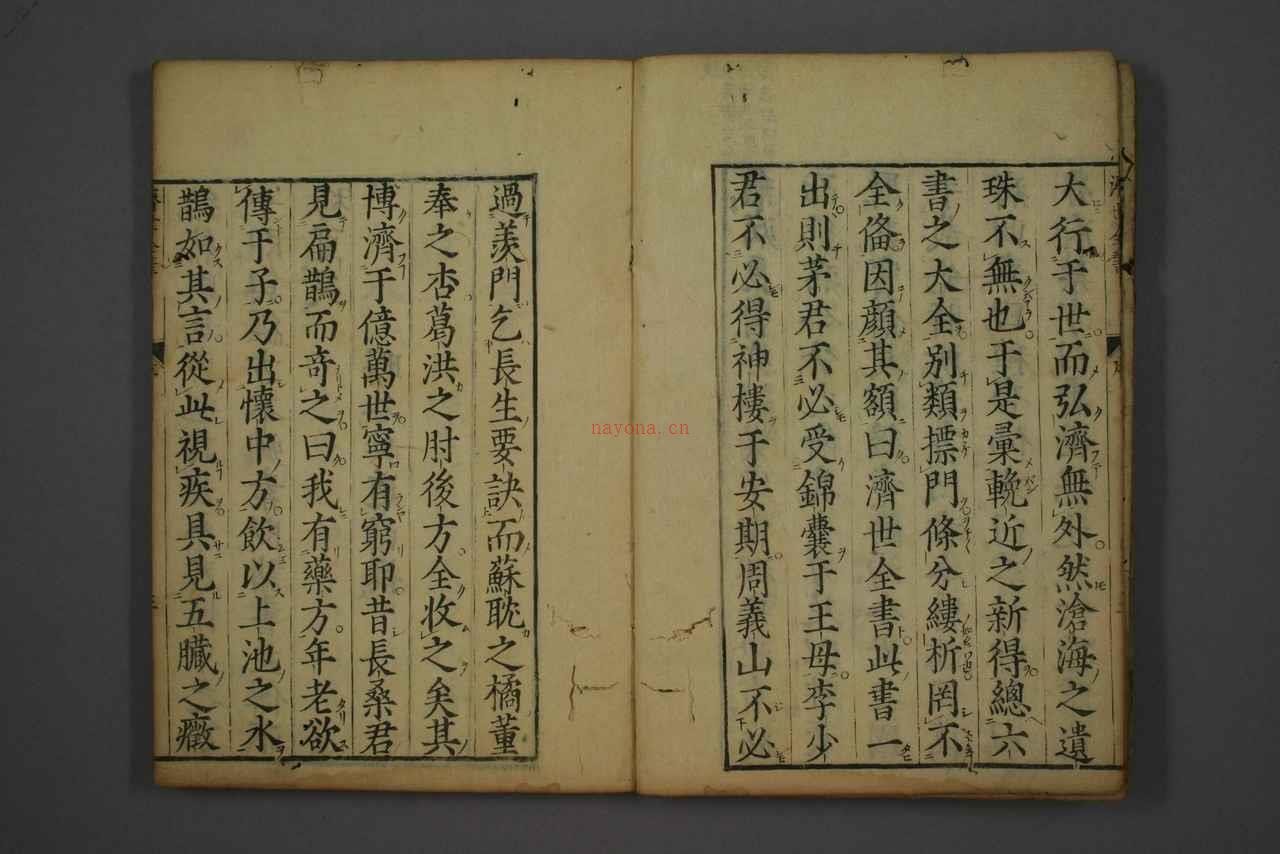 大行于世而弘濟無外然滄海之遺
珠不無也于是彙輓近之新得總六
書之大全別類摽門條分縷析罔不
全俻因顏其額曰濟世全書此書一
出則茅君不必受錦囊于王母李少
君不必得神樓于安期周義山不必
過羨門乞長生要訣而蘇耽之橘董
奉之杏葛洪之肘後方全收之矣其
博濟于億萬世寧有窮耶昔長桑君
見扁鵲而竒之曰我有藥方年老欲
傳于子乃出懷中方飲以上池之水
鵲如其言從此視疾具見五臟之癥
nayona.cn